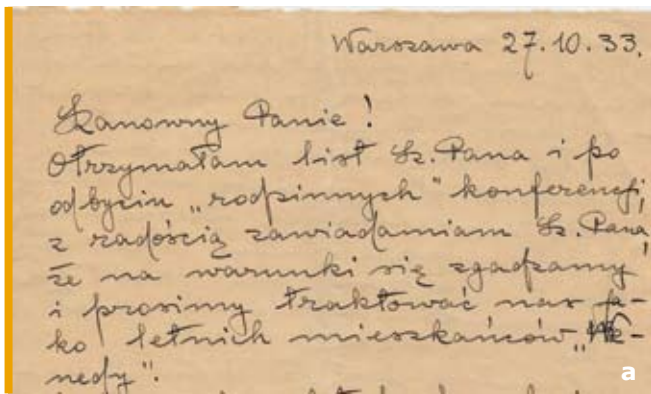 Warszawa 27.10.33.
Szanowny Panie!
Otrzymałam list Sz. Pana i po
odbyciu „rodzinnych" konferencji,
z radością zawiadamiam Sz. Pana,
że na warunki się zgadzamy
i prosimy traktować nas ja-
ko letnich mieszkańców
nedy".
a